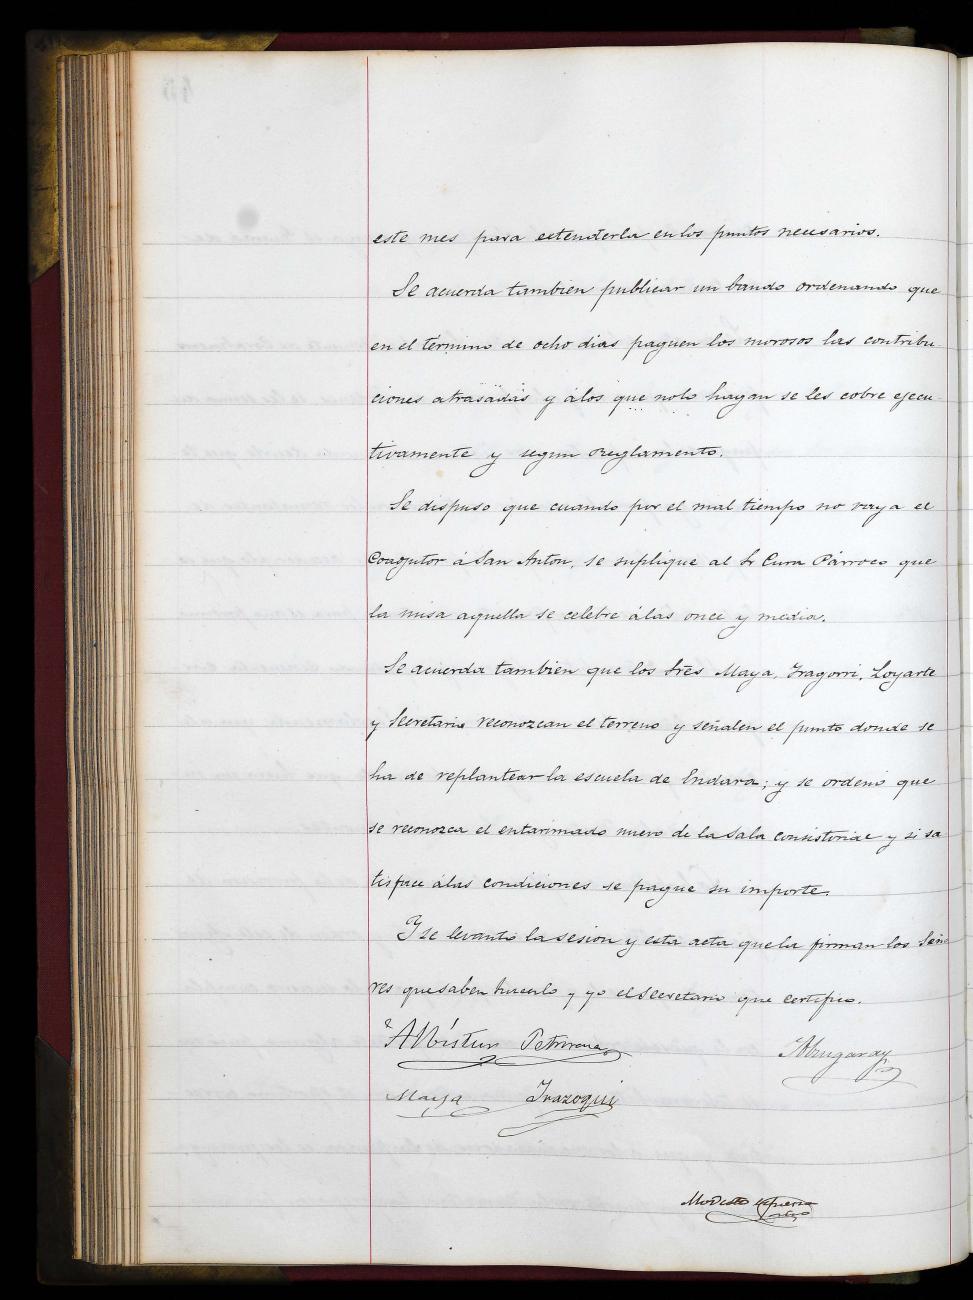 este mes para estenderla en los puntos necesarios.
Se acuerda tambien publicar un bando ordenando que
en el término de ocho dias paguen los morosos las contribu-
ciones atrasadas y álos que nolo hagan se les cobre ejecu-
tivamente y segun Reglamento.
Se dispuso que cuando por el mal tiempo no vaya el
Coadjutor á San Anton, se suplique al Sr Cura Párroco que
la misa aquella se celebre álas once y media.
Se acuerda tambien que los Sres Maya, Iragorri, Loyarte
y Secretario reconozcan el terreno y señalen el punto donde se
ha de replantear la escuela de Endara; y se ordenó que
se reconozca el entarimado nuevo de la Sala consistorial y si sa
tisface álas condiciones se pague su importe.
Y se levantó la sesion y esta acta que la firman los Seño
res que saben hacerlo y yo el Secretario que certifico.
Albístur Petrirena
Maya Irazoqui
Modesto